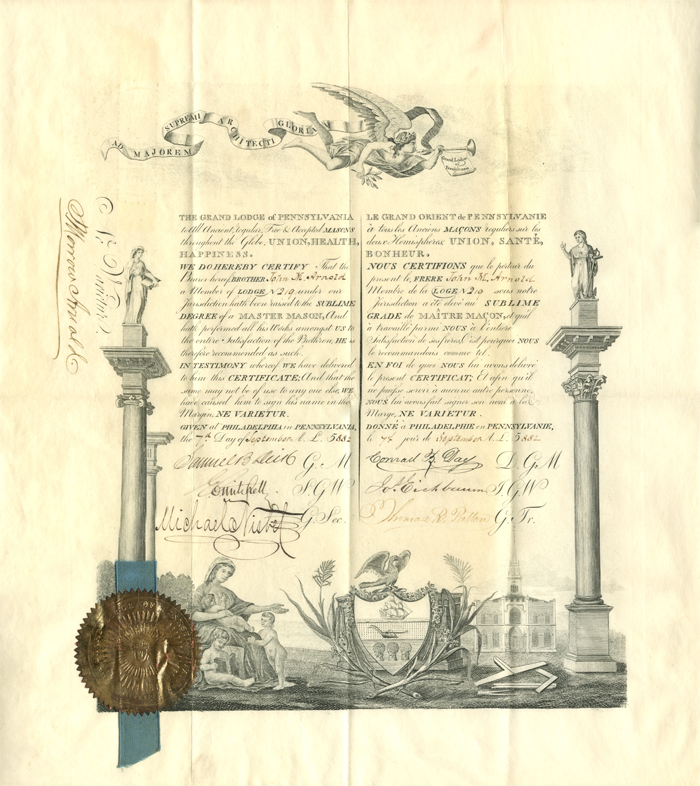 AD MAJOREM SUPREMI ARCHITECTI GLORIAM
Grand Lodge of Pennsylvania
Ne Varietur
THE GRAND LODGE of PENNSYLVANIA
to All Ancient, regular, Free & Accepted MASONS
throughout the Globe, UNION, HEALTH,
HAPPINESS.
WE DO HEREBY CERTIFY That the
Bearer hereof BROTHER John H. Arnold
a Member of LODGE No 219 under our
Jurisdiction hath been raised to the SUBLIME
DEGREE of a MASTER MASON, And
hath performed all his Works amongst US to
the entire Satisfaction of the Brethren, HE is
therefore recommended as such.
IN TESTIMONY whereof WE have delivered
to him this CERTIFICATE; And that the
same may not be of use to any one else, WE
have caused him to sign his name in the
Margin, NE VARIETUR.
GIVEN at PHILADELPHIA in PENNSYLVANIA,
the 7th Day of September A. L. 5882
G. M
Mitchell S. G W
Michael Nisbet G. Sec.
LE GRAND ORIENT de PENNSYLVANIE
à tous les Anciens MAÇONS réguliers sur les
deux Hémisphères UNION, SANTÉ,
BONHEUR.
NOUS CERTIFIONS que le porteur du
présent le, FRERE John H. Arnold
Membre de la LOGE No 219 sous notre
Jurisdiction a été élevé au SUBLIME
GRADE de MAÎTRE MAÇON, et qu'il
a travaillé parmi NOUS à l'entière
Satisfaction de ses frères, C'est pourquoi NOUS
le recommandons comme tel.
EN FOI de quoi NOUS lui avons délivré
le présent CERTIFICAT; Et afin qu'il
ne puisse servir à aucune autre personne,
NOUS lui avons fait signer son nom à la
Marge, NE VARIETUR.
DONNÉ à PHILADELPHIE en PENNSYLVANIE,
le 7e jour de September A. L. 5882
Conrad B. Day D. G M
Jos. Eichbaum J. G W
Thomas R. Patton G. Tr.